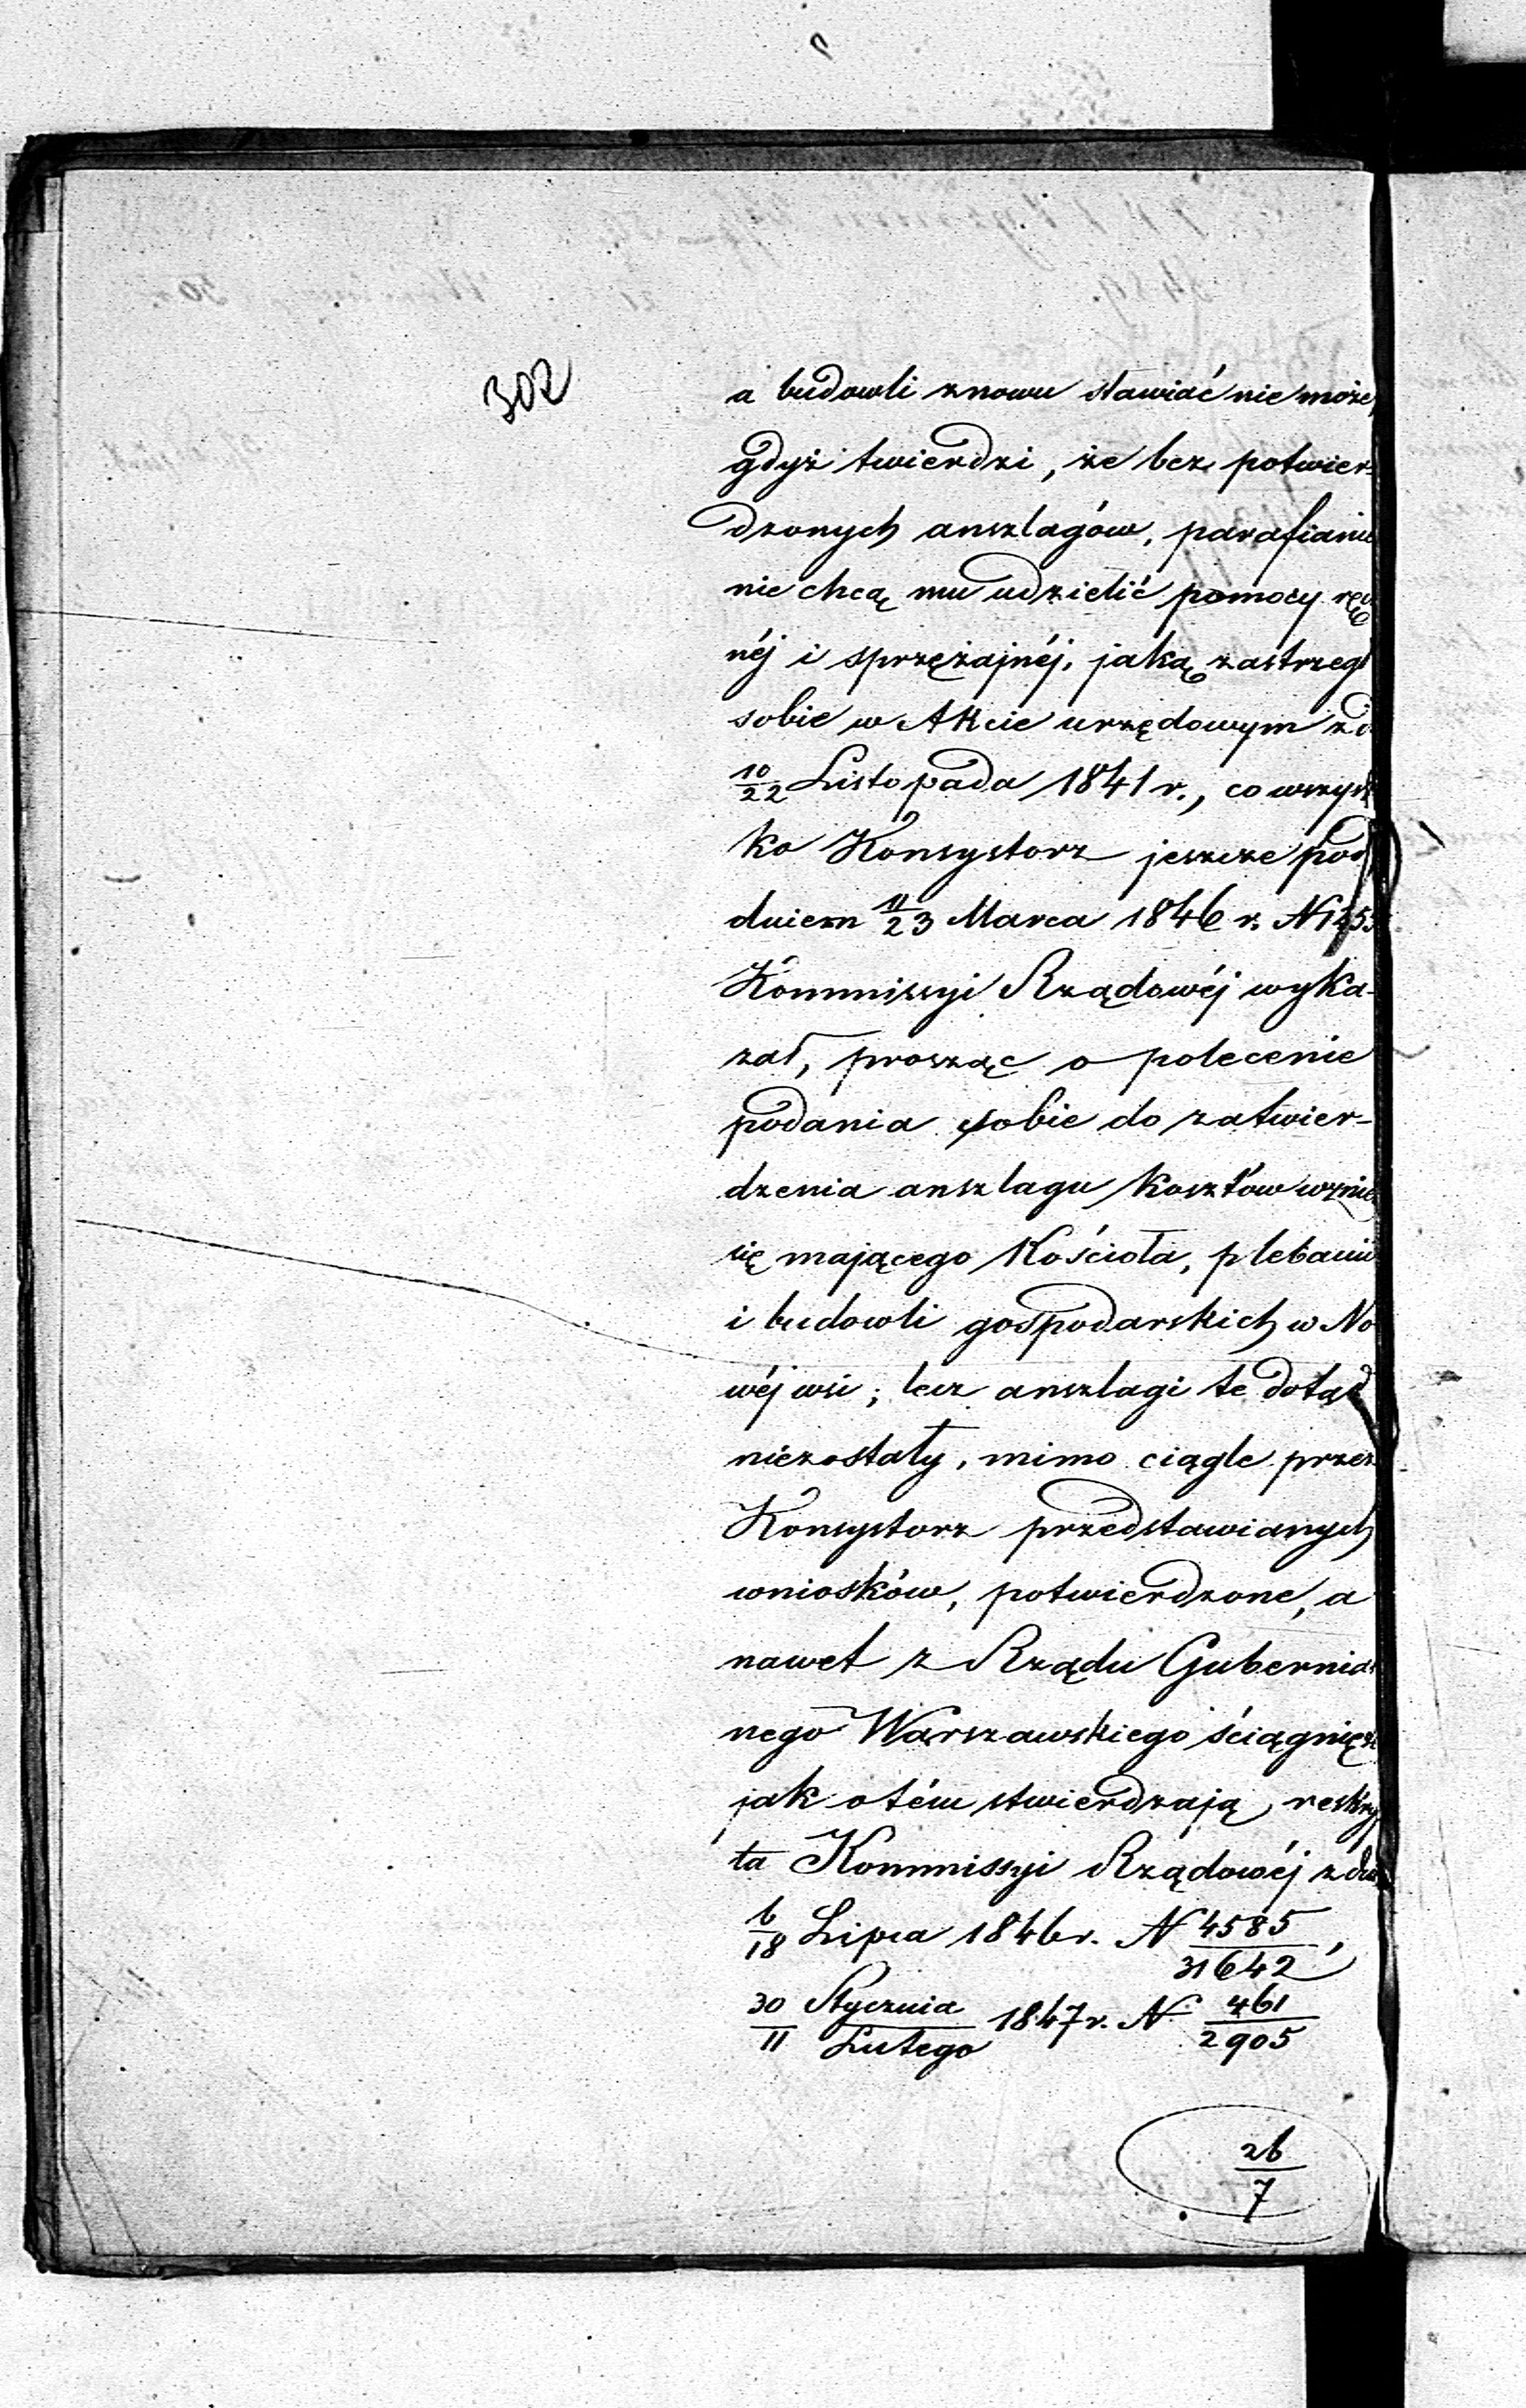 302
a budowli znowu stawiać nie może,
gdyż twierdzi, że bez potwier=
dzonych anszlagów, parafianie
nie chcą mu udzielić pomocy
néj i sprzężajnéj, jaką zastrzegł
sobie w Akcie urzędowym
10/22 Listopada 1841 r., co wszyst
ko Konsystorz jeszcze pod
dniem 11/23 Marca 1846 r. N
Kommissyi Rządowéj wyka-
zał, prosząc o polecenie
podania sobie do zatwier-
dzenia anszlagu kosztów
się mającego Kościoła, plebanii
i budowli gospodarskich w No
wéj wsi; lecz anszlagi te dotąd
niezostały, mimo ciągle przez
Konsystorz przedstawianych
wniosków, potwierdzone, a
nawet z Rządu Gubernial
nego Warszawskiego
jak o tém stwierdzają reskryp
ta Kommissyi Rządowéj
6/18 Lipca 1846 r. N 4585/31642,
30/11 Stycznia/Lutego 1847 r. N 461/2905
26/7